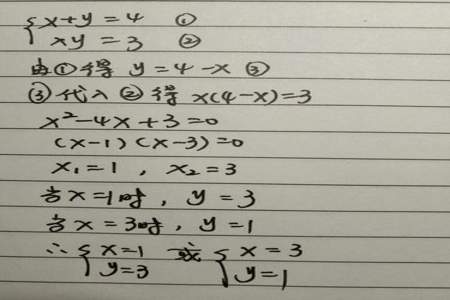 {x+y=4 ①
xy=3 ②
由①得 y=4-x ③
③代入②得 x(4-x)=3
x²-4x+3=0
(x-1)(x-3)=0
x₁=1, x₂=3
当x=1时, y=3
当x=3时, y=1
∴{x=1 或{x=3
y=3 y=1